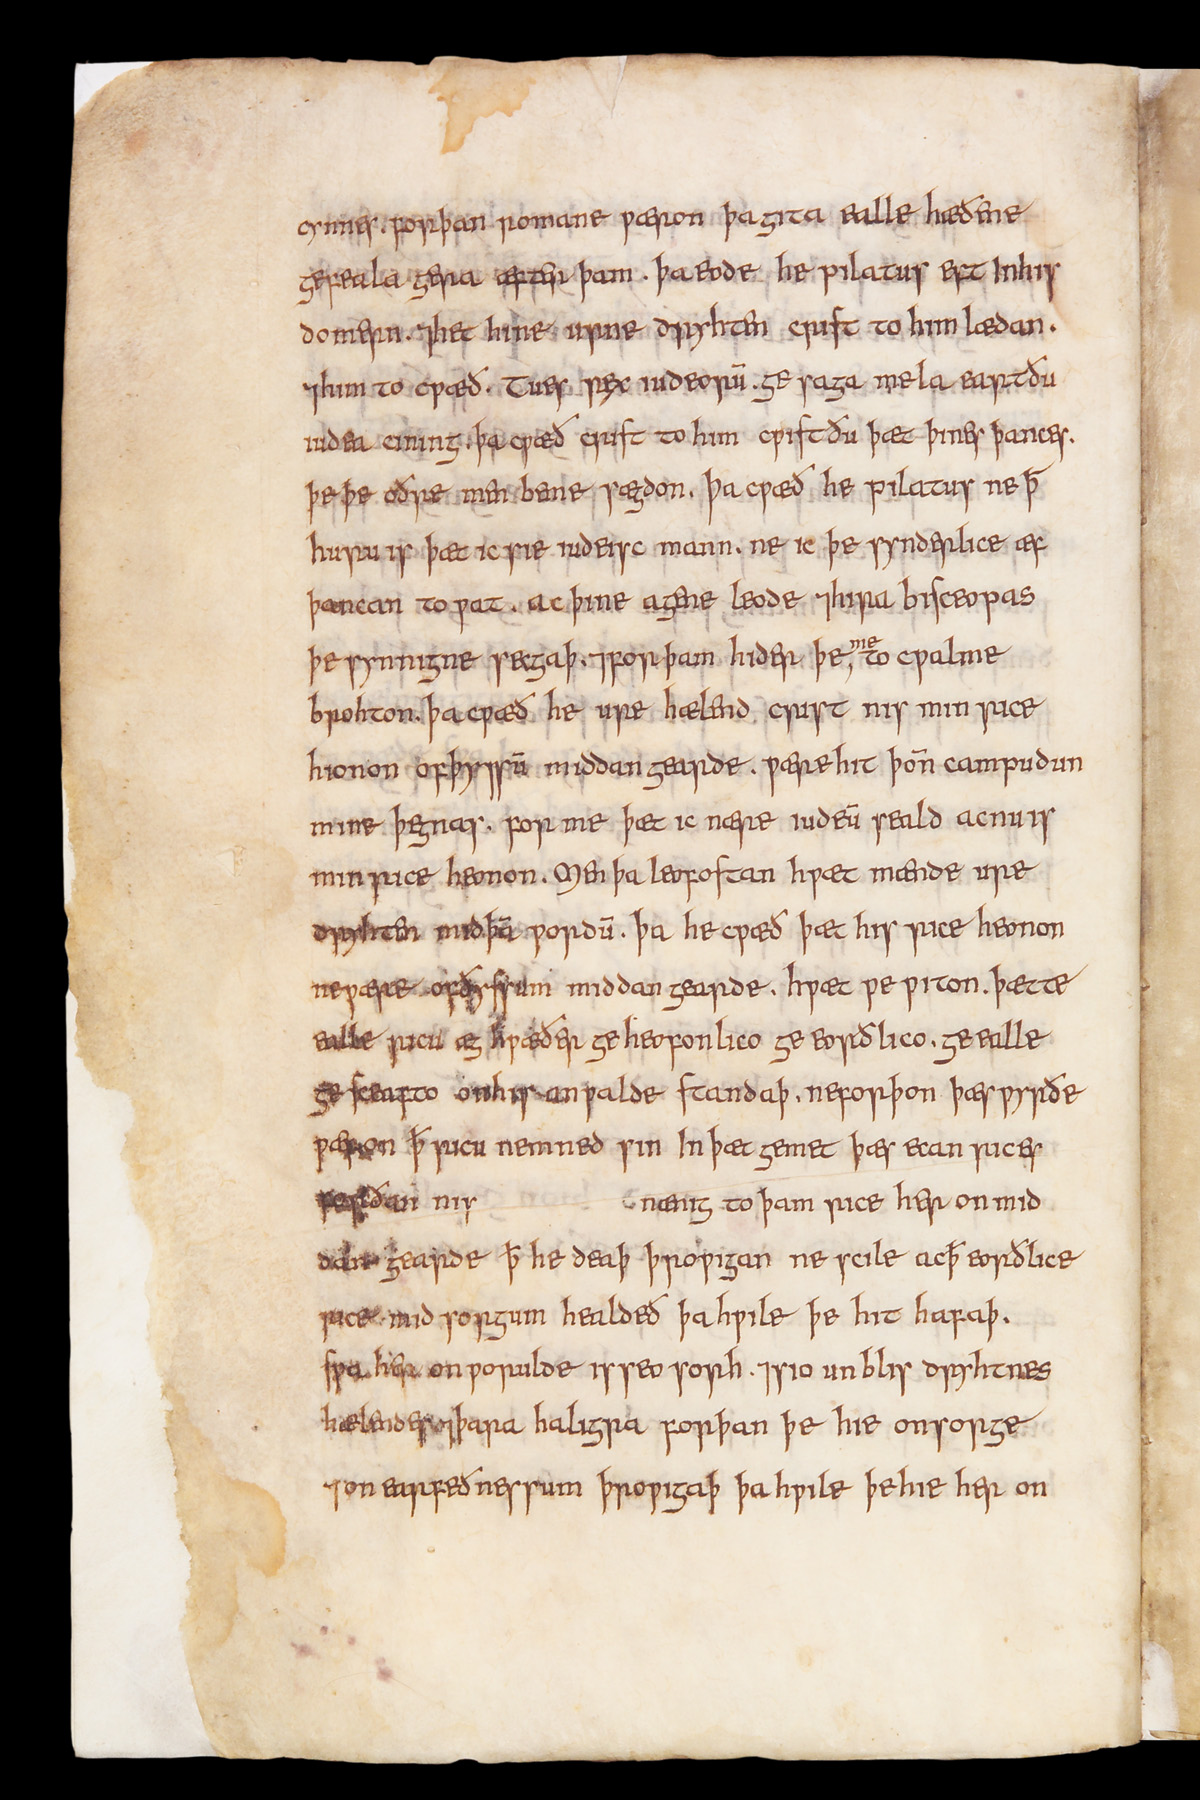 cynnes. forþan romane ƿæron þagita ealle hæðene
gefeala gera æfter þam. þaeode he pilatus eft Inhis
domern. ⁊het hine urne dryhten crist to him lædan.
⁊him to cƿæð. Tues rex iudeorū. ge saga me la eartðu
iudea cining. þa cƿæð crist to him cƿistðu þæt þines þances.
þe þe oðre men bene sægdon. þa cƿæð he pilatus ne ꝥ
huru is þæt ic sie iudeisc mann. ne ic þe synderlice æf
þancan to ƿat. ac þine agene leode ⁊hira bisceopas
þe synnigne secgaþ. ⁊for þam hider þe, me to cƿalme
brohton. þa cƿæð he ure hælend crist nis min rice
hionon ofþyssū middangearde. ƿærehit þoñ campudun
mine þegnas. for me þæt ic nære iudeū seald ac nu is
min rice heonon. Men þa leofostan hƿæt mænde ure
dryhten midþā ƿordū. þa he cƿæð þæt his rice heonon
neƿære ofðyssum middangearde. hƿæt ƿe ƿiton. þætte
ealle ricu æg hƿæðer geheofonlico ge eorðlico. ge ealle
ge sceafto onhis anƿalde standaþ. neforþon þæs ƿyrðe
ƿæron ꝥ ricu nemned sin In þæt gemet þæs ecan rices
forðan nis nænig to þam rice her on mid
dan gearde ꝥ he deaþ þroƿigan ne scile acꝥ eorðlice
rice mid sorgum healdeð þa hƿile þe hit hafaþ.
sƿa her on ƿorulde is seo sorh. ⁊sio unblis dryhtnes
hælendes ⁊þara haligra forþan þe hie onsorge
⁊on earfeðnessum þroƿigaþ þa hƿile þehie her on